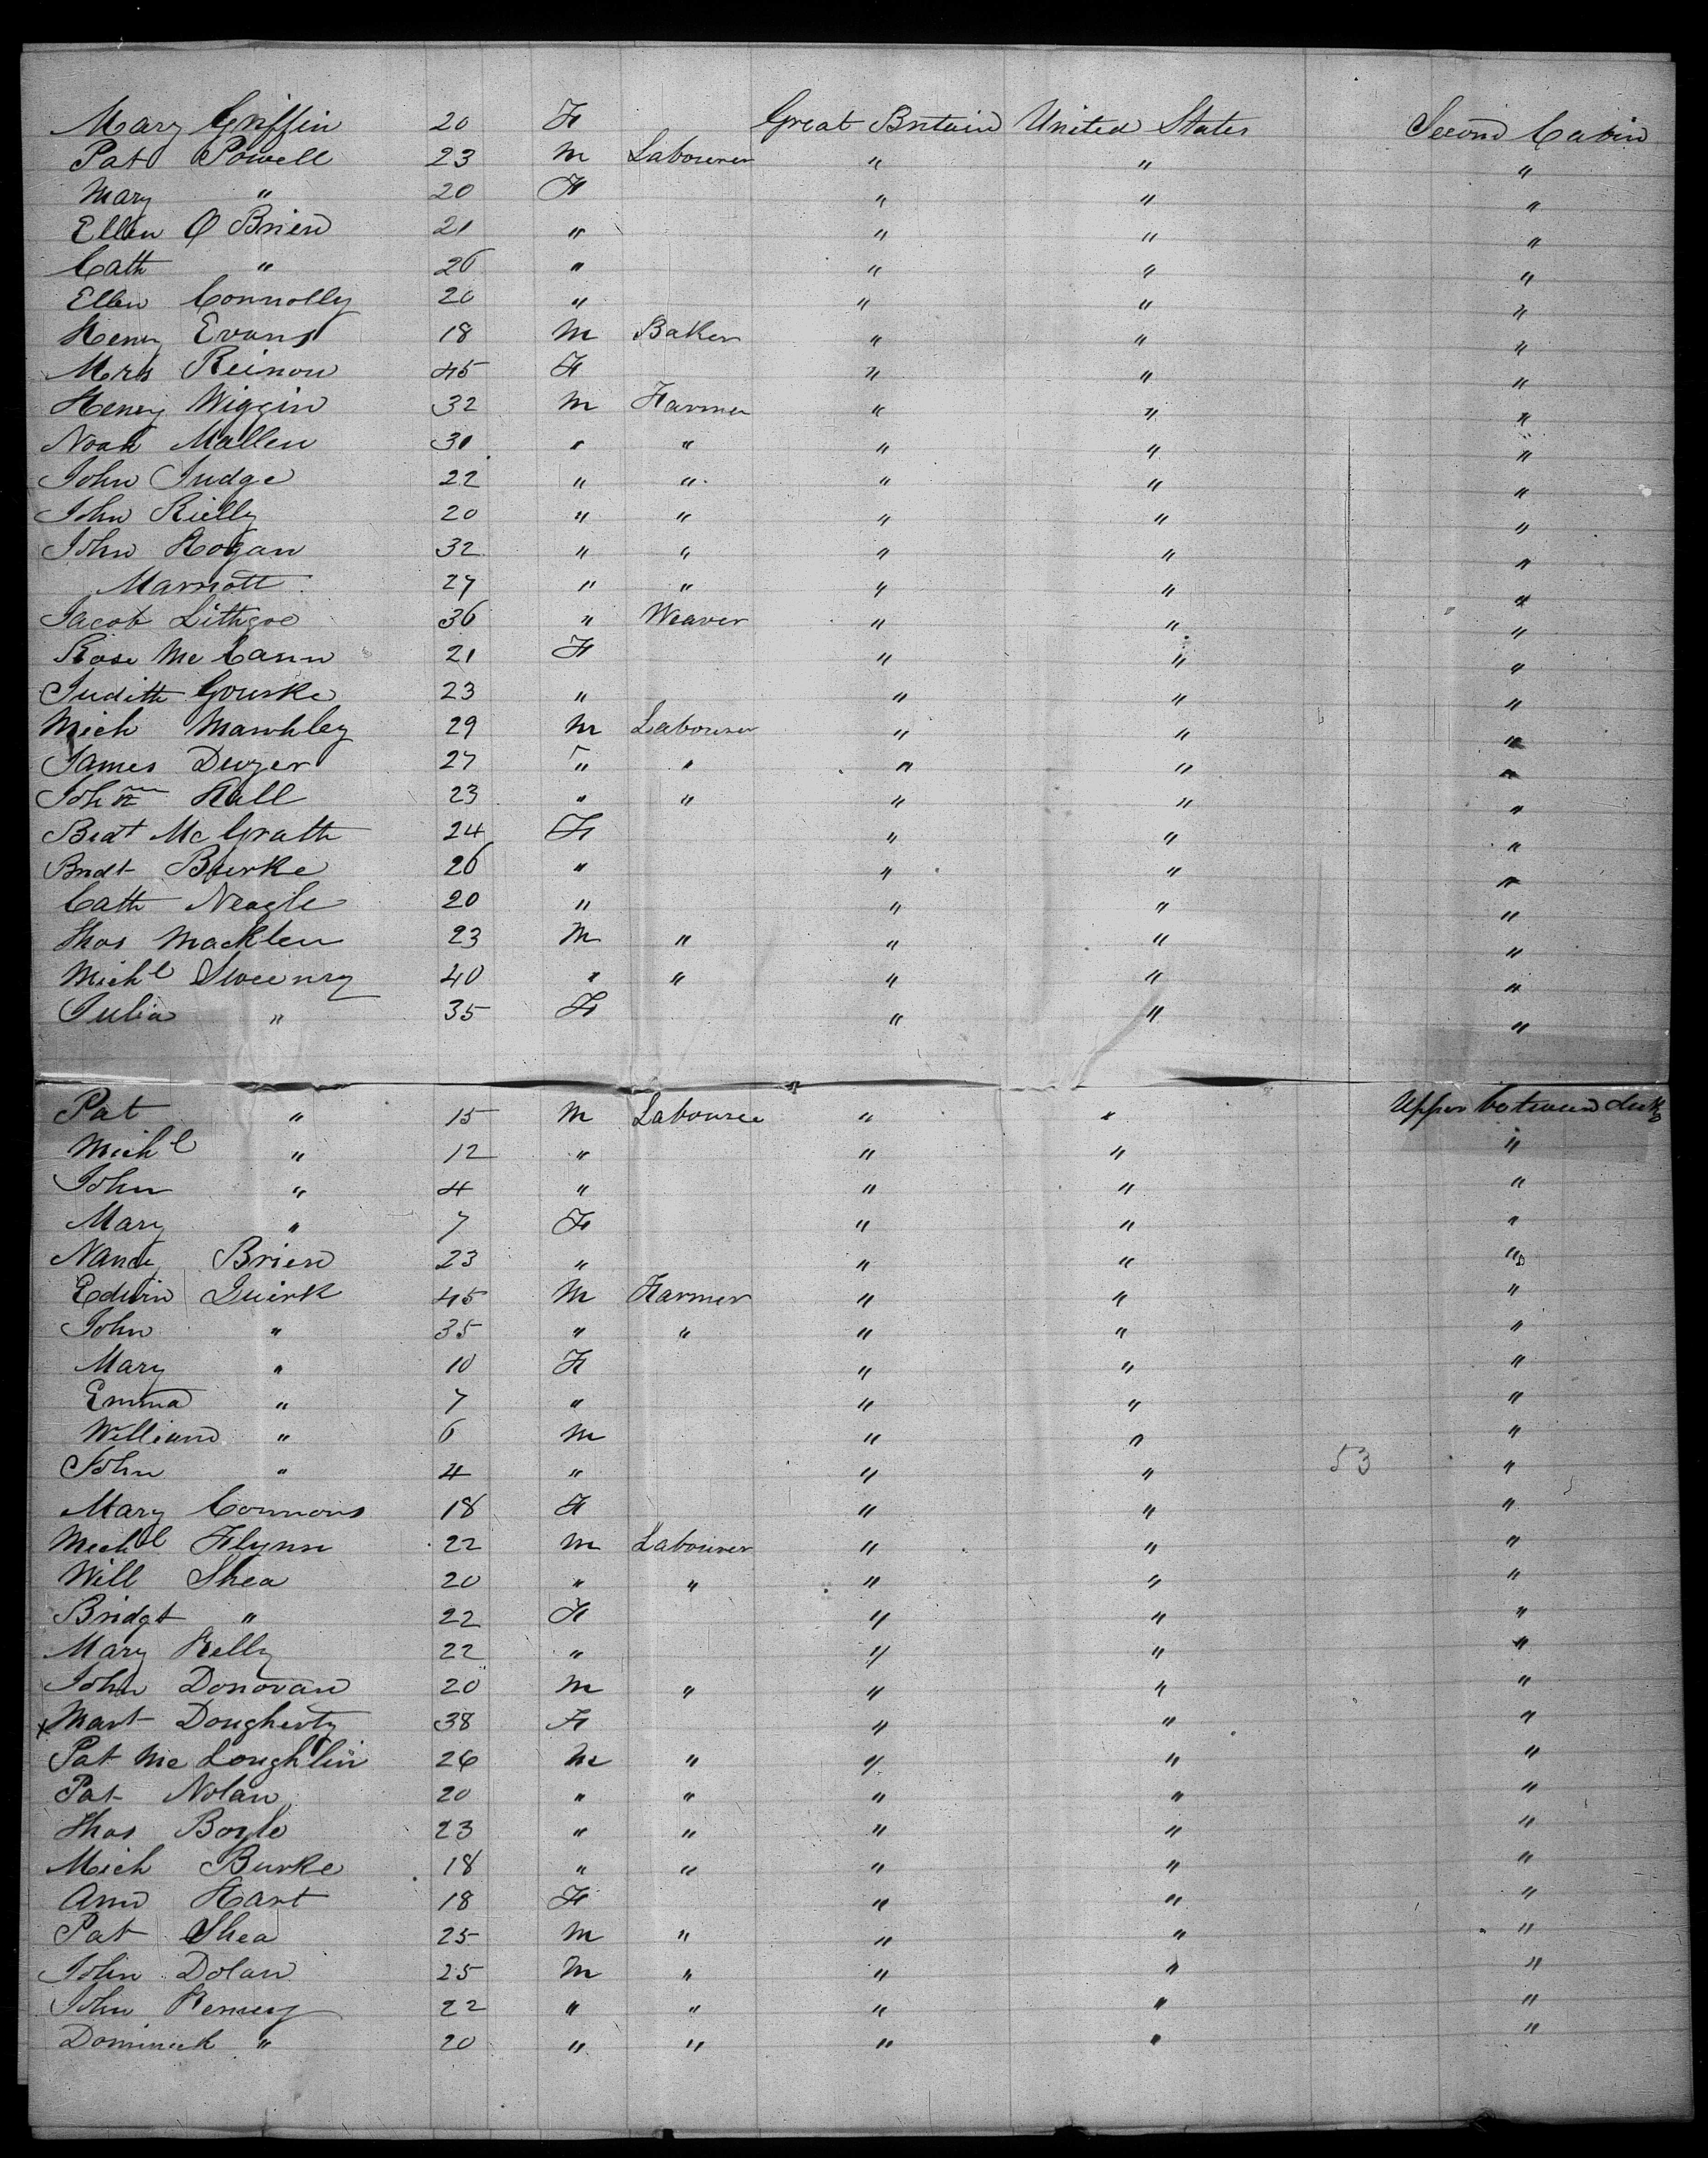 Mary Griffin 20 F Great Britain United States Second Cabin
Pat Powell 23 M Labourer " " "
Mary " 20 F " " "
Ellen O Brien 21 " " " "
Cath " 26 " " " "
Ellen Connolly 20 " " " "
Henry Evans 18 M Baker " " "
Mrs 45 F " " "
Henry Wiggin 32 M Farmer " " "
Noah Mallen 30 " " " " "
John Judge 22 " " " " "
John Rielly 20 " " " " "
John Hogan 32 " " " " "
Marriott 27 " " " " "
Jacob Lithgoe 36 " Weaver " " "
Rose Mc Cann 21 F " " "
Judith 23 " " " "
Mich 29 M Labourer " " "
James Dwyer 27 " " " " "
Hall 23 " " " " "
Bridt Mc Grath 24 F " " "
Bridt Burke 26 " " " "
Cath Neagle 20 " " " "
Thos Macklen 23 M " " " "
Michl Sweeney 40 " " " " "
Julia " 35 F " " "
Pat " 15 M Labourer " " Upper between decks
Michl " 12 " " " "
John " 4 " " " "
Mary " 7 F " " "
Brien 23 " " " "
Edwin Quirk 45 M Farmer " " "
John " 35 " " " " "
Mary " 10 F " " "
Emma " 7 " " " "
William " 6 M " " "
John " 4 " " " 53 "
Mary Connons 18 F " " "
Michl Flynn 22 M Labourer " " "
Will Shea 20 " " " " "
Bridgt " 22 F " " "
Mary Kelly 22 " " " "
John Donovan 20 M " " " "
x Mart Dougherty 38 F " " "
Pat Mc Loughlin 26 M " " " "
Pat Nolan 20 " " " " "
Thos Boyle 23 " " " " "
Mich Burke 18 " " " " "
Ann Hart 18 F " " "
Pat Shea 25 M " " " "
John Dolan 25 M " " " "
John 22 " " " " "
Dominick " 20 " " " " "